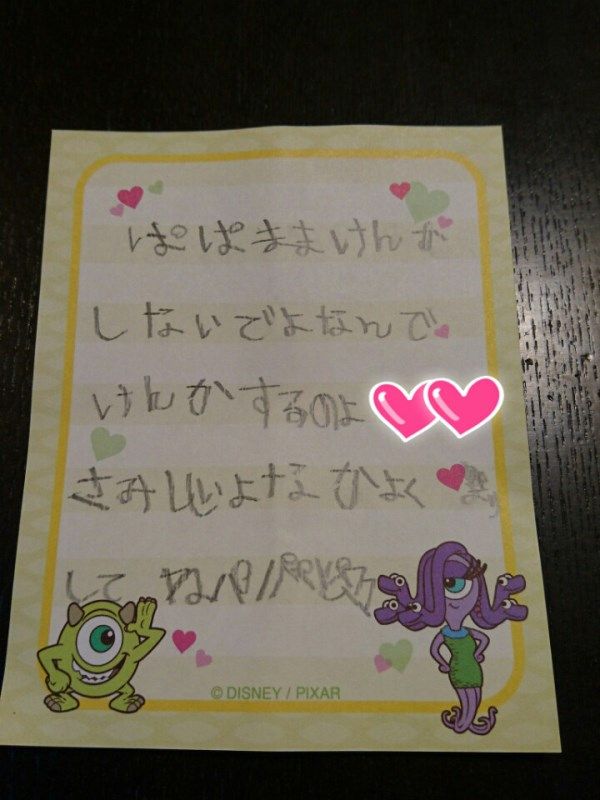 ぱぱままけんか
しないでよなんで
けんかするのよ
さみしいよなかよく
してね
© DISNEY / PIXAR